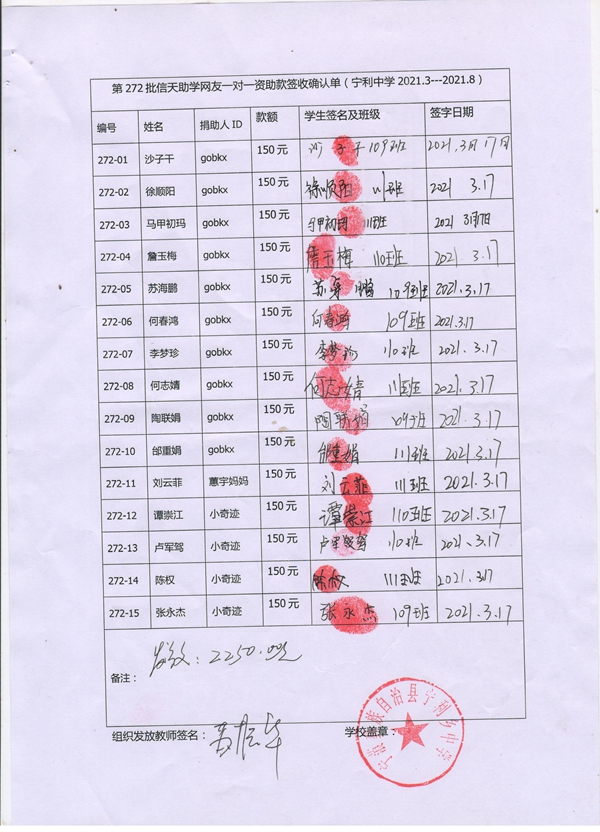 第272批信天助学网友一对一资助款签收确认单（宁利中学2021.3---2021.8）
编号 姓名 捐助人ID 款额 学生签名及班级 签字日期
272-01 沙子干 gobkx 150元 沙子干 109班 2021年3月17日
272-02 徐顺阳 gobkx 150元 徐顺阳 111班 2021 3.17
272-03 马甲初玛 gobkx 150元 马甲初玛 111班 2021 3月17日
272-04 詹玉梅 gobkx 150元 詹玉梅 110班 2021.3.17
272-05 苏海鹏 gobkx 150元 苏海鹏 109班 2021.3.17
272-06 何春鸿 gobkx 150元 何春鸿 109班 2021.3.17
272-07 李梦珍 gobkx 150元 李梦珍 110班 2021.3.17
272-08 何志婧 gobkx 150元 何志婧 111班 2021.3.17
272-09 陶联娟 gobkx 150元 陶联娟 109班 2021.3.17
272-10 邰重娟 gobkx 150元 邰重娟 111班 2021.3.17
272-11 刘云菲 蕙宇妈妈 150元 刘云菲 111班 2021.3.17
272-12 谭崇江 小奇迹 150元 谭崇江 110班 2021.3.17
272-13 卢军驾 小奇迹 150元 卢军驾 110班 2021.3.17
272-14 陈权 小奇迹 150元 陈权 111班 2021.3.17
272-15 张永杰 小奇迹 150元 张永杰 109班 2021.3.17
备注： 2250.00元
组织发放教师签名： 学校盖章：
族自治县宁利乡中学